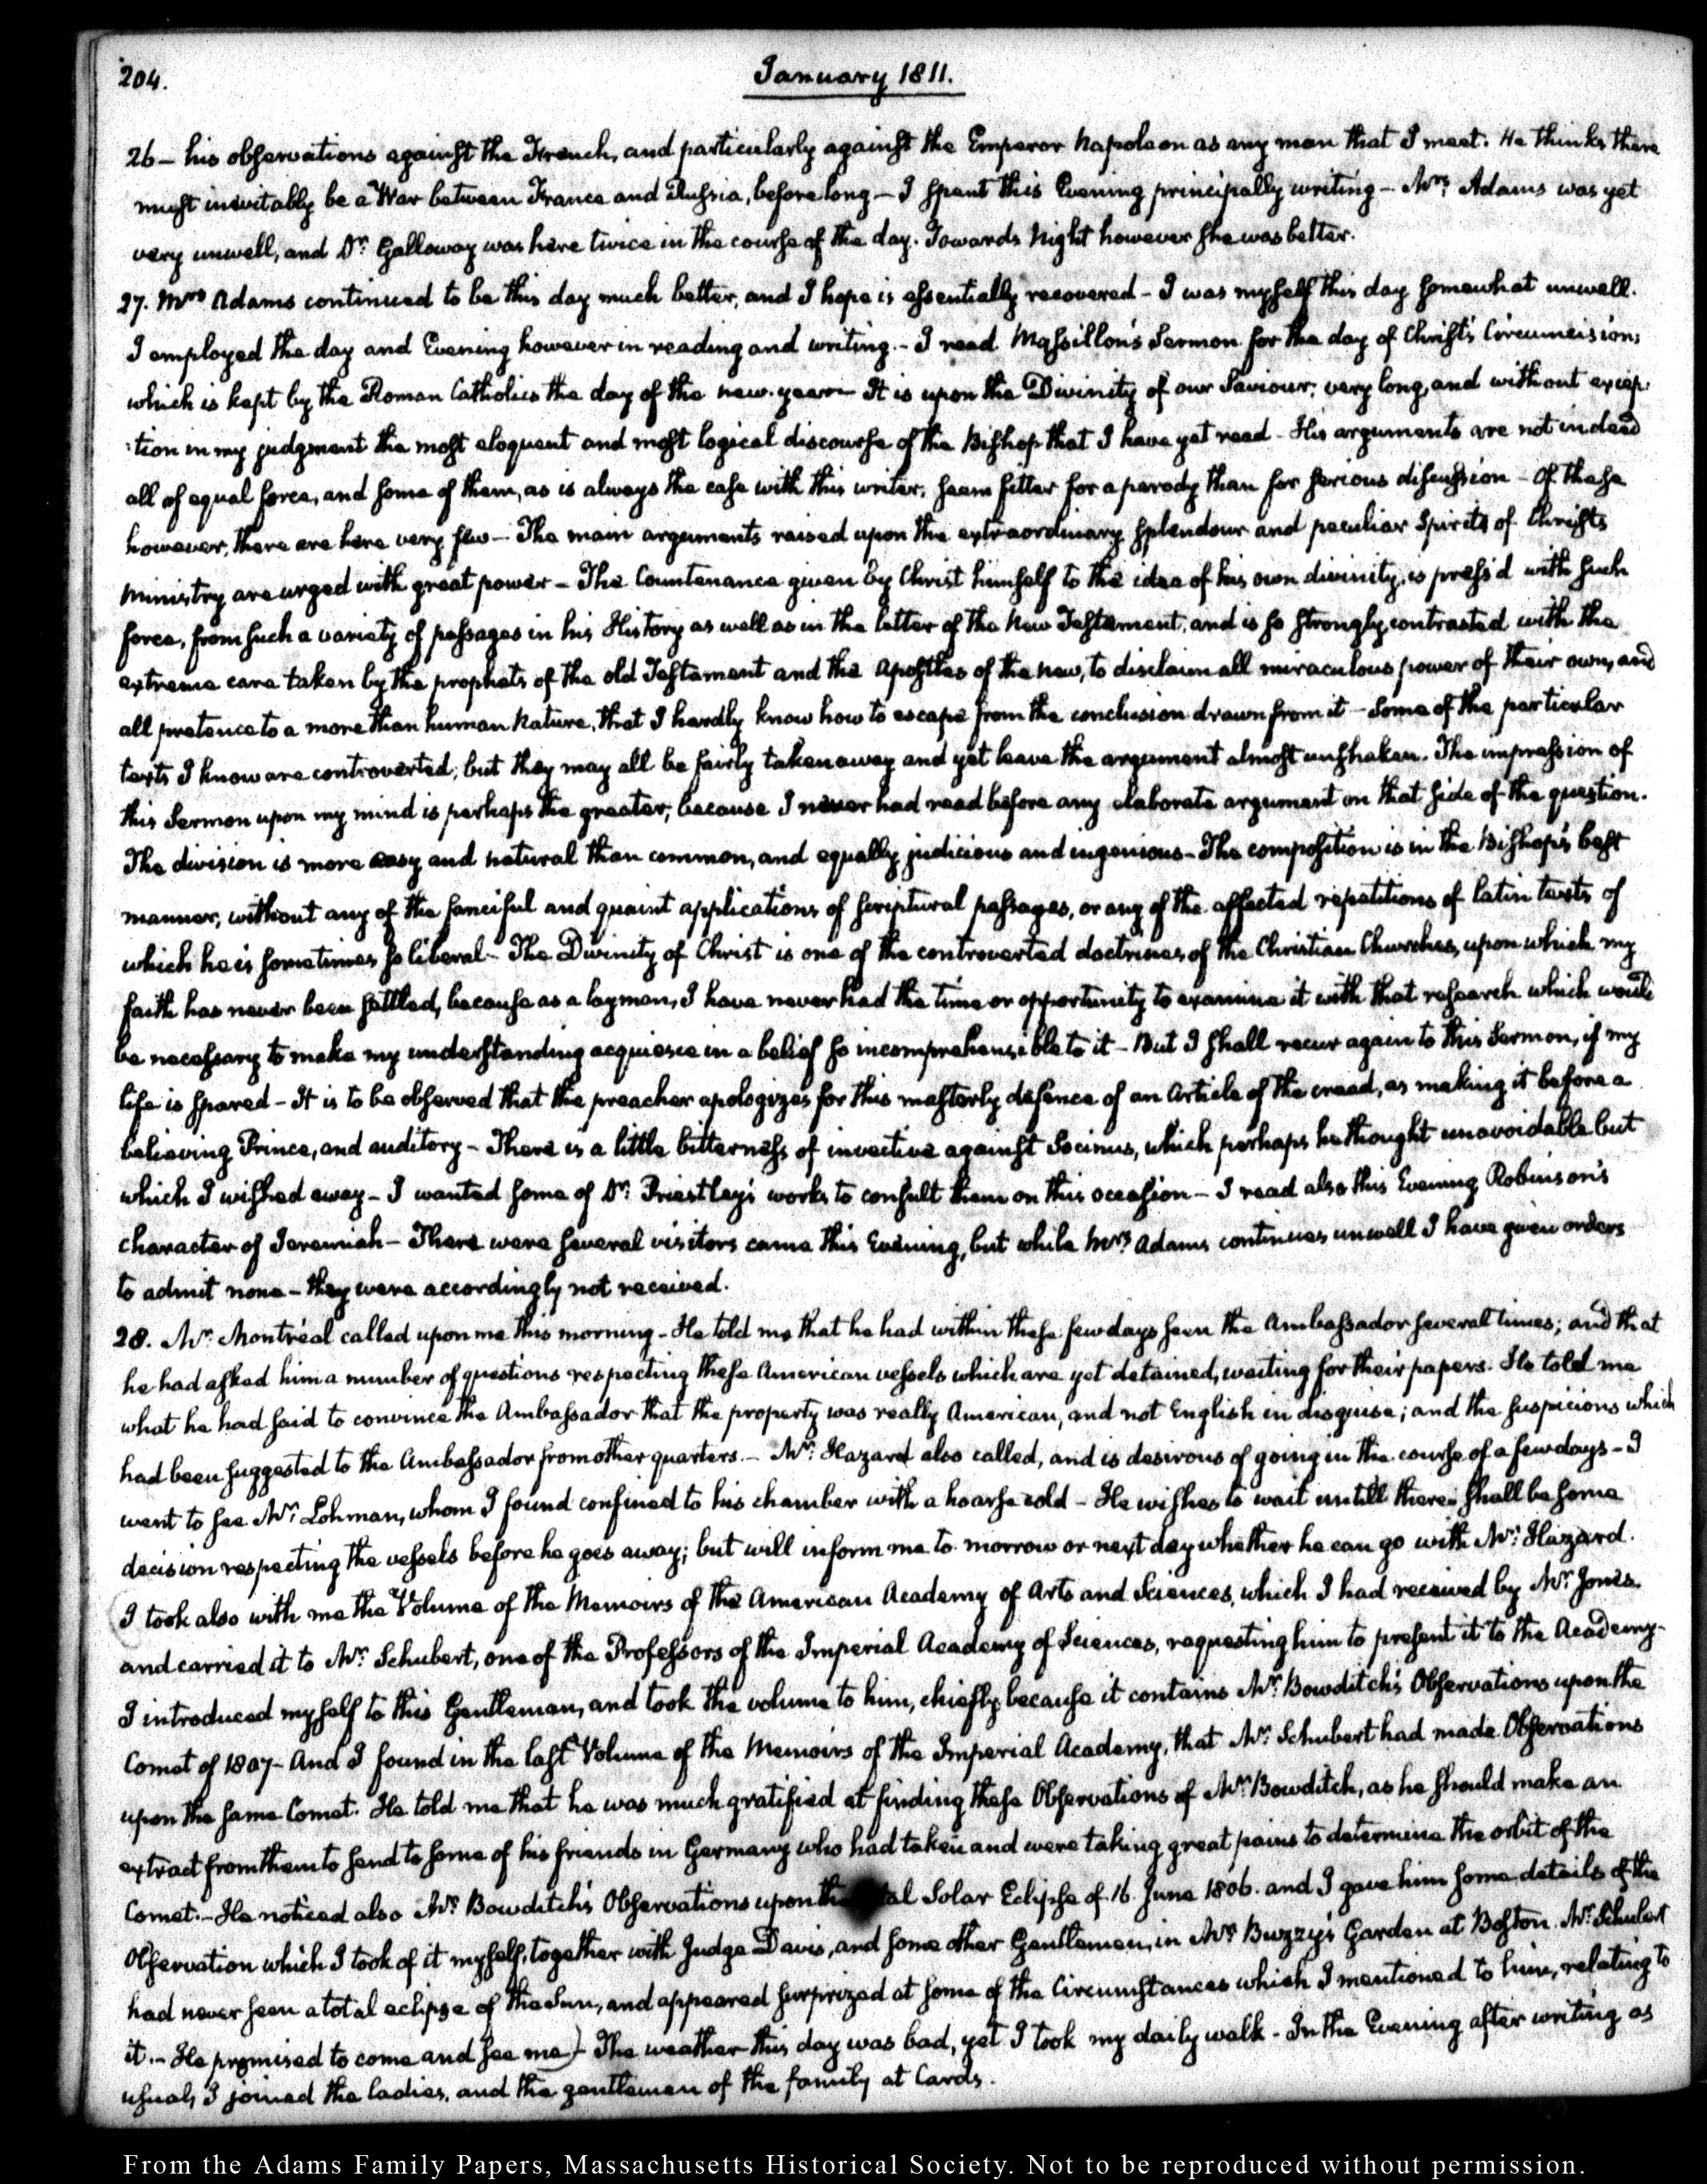 204.
January 1811.
26 – his observations against the French, and particularly against the Emperor Napoleon as any man that I meet. He thinks there
must inevitably be a War between France and Russia, before long – I spent this Evening principally writing – Mrs. Adams was yet
very unwell, and Dr. Galloway was here twice in the course of the day. Towards Night however she was better.
27. Mrs Adams continued to be this day much better, and I hope is essentially recovered – I was myself this day somewhat unwell.
I employed the day and Evening however in reading and writing. – I read Massillon's Sermon for the day of Christ's Circumcision;
which is kept by the Roman Catholics the day of the new-year – It is upon the Divinity of our Saviour; very long, and without excep-
:tion in my judgment the most eloquent and most logical discourse of the Bishop that I have yet read – His arguments are not indeed
all of equal force, and some of them, as is always the case with this writer, seem fitter for a parody than for serious discussion – Of these
however, there are here very few – The main arguments raised upon the extraordinary splendour and peculiar Spirits of Christs
ministry are urged with great power – The Countenance given by Christ himself to the idea of his own divinity, is press'd with such
force, from such a variety of passages in his History as well as in the letter of the New Testament, and is so strongly contrasted with the
extreme care taken by the prophets of the old Testament and the Apostles of the new, to disclaim all miraculous power of their own, and
all pretence to a more than human Nature, that I hardly know how to escape from the conclusion drawn from it – Some of the particular
texts I know are controverted; but they may all be fairly taken away and yet leave the argument almost unshaken. The impression of
this Sermon upon my mind is perhaps the greater, because I never had read before any elaborate argument on that side of the question.
The division is more easy and natural than common, and equally judicious and ingenious – The composition is in the Bishop's best
manner, without any of the fanciful and quaint applications of scriptural passages, or any of the affected repetitions of latin texts of
which he is sometimes so liberal – The Divinity of Christ is one of the controverted doctrines of the Christian Churches, upon which my
faith has never been settled, because as a layman, I have never had the time or opportunity to examine it with that research which would
be necessary to make my understanding acquiesce in a belief so incomprehensible to it – But I shall recur again to this Sermon, if my
life is spared – It is to be observed that the preacher apologizes for this masterly defence of an Article of the creed, as making it before a
believing Prince, and auditory – There is a little bitterness of invective against Socinus, which perhaps he thought unavoidable but
which I wished away – I wanted some of Dr. Priestley's works to consult them on this occasion – I read also this Evening Robinson's
character of Jeremiah – There were several visitors came this Evening, but while Mrs. Adams continues unwell I have given orders
to admit none – they were accordingly not received.
28. Mr. Montréal called upon me this morning – He told me that he had within these few days seen the Ambassador several times; and that
he had asked him a number of questions respecting these American vessels which are yet detained, waiting for their papers. He told me
what he had said to convince the Ambassador that the property was really American, and not English in disguise; and the suspicions which
had been suggested to the Ambassador from other quarters. – Mr. Hazard also called, and is desirous of going in the course of a few days – I
went to see Mr. Lohman, whom I found confined to his chamber with a hoarse cold – He wishes to wait untill there shall be some
decision respecting the vessels before he goes away; but will inform me to-morrow or next day whether he can go with Mr. Hazard.
(I took also with me the Volume of the Memoirs of the American Academy of Arts and Sciences, which I had received by Mr. Jones.
and carried it to Mr. Schubert, one of the Professors of the Imperial Academy of Sciences, requesting him to present it to the Academy –
I introduced myself to this Gentleman, and took the volume to him, chiefly because it contains Mr. Bowditch's Observations upon the
Comet of 1807 – And I found in the last Volume of the Memoirs of the Imperial Academy, that Mr. Schubert had made Observations
upon the same Comet. He told me that he was much gratified at finding these Observations of Mr. Bowditch, as he should make an
extract from them to send to some of his friends in Germany who had taken and were taking great pains to determine the orbit of the
Comet. – He noticed also Mr. Bowditch's Observations upon the Solar Eclipse of 16. June 1806. and I gave him some details of the
Observation which I took of it myself, together with Judge Davis, and some other Gentlemen, in Mr. Bussy's Garden at Boston. Mr. Schubert
had never seen a total eclipse of the Sun, and appeared surprized at some of the Circumstances which I mentioned to him, relating to
it. – He promised to come and see me) – The weather this day was bad, yet I took my daily walk – In the Evening after writing as
usual, I joined the ladies, and the gentlemen of the family at Cards.
From the Adams Family Papers, Massachusetts Historical Society. Not to be reproduced without permission.